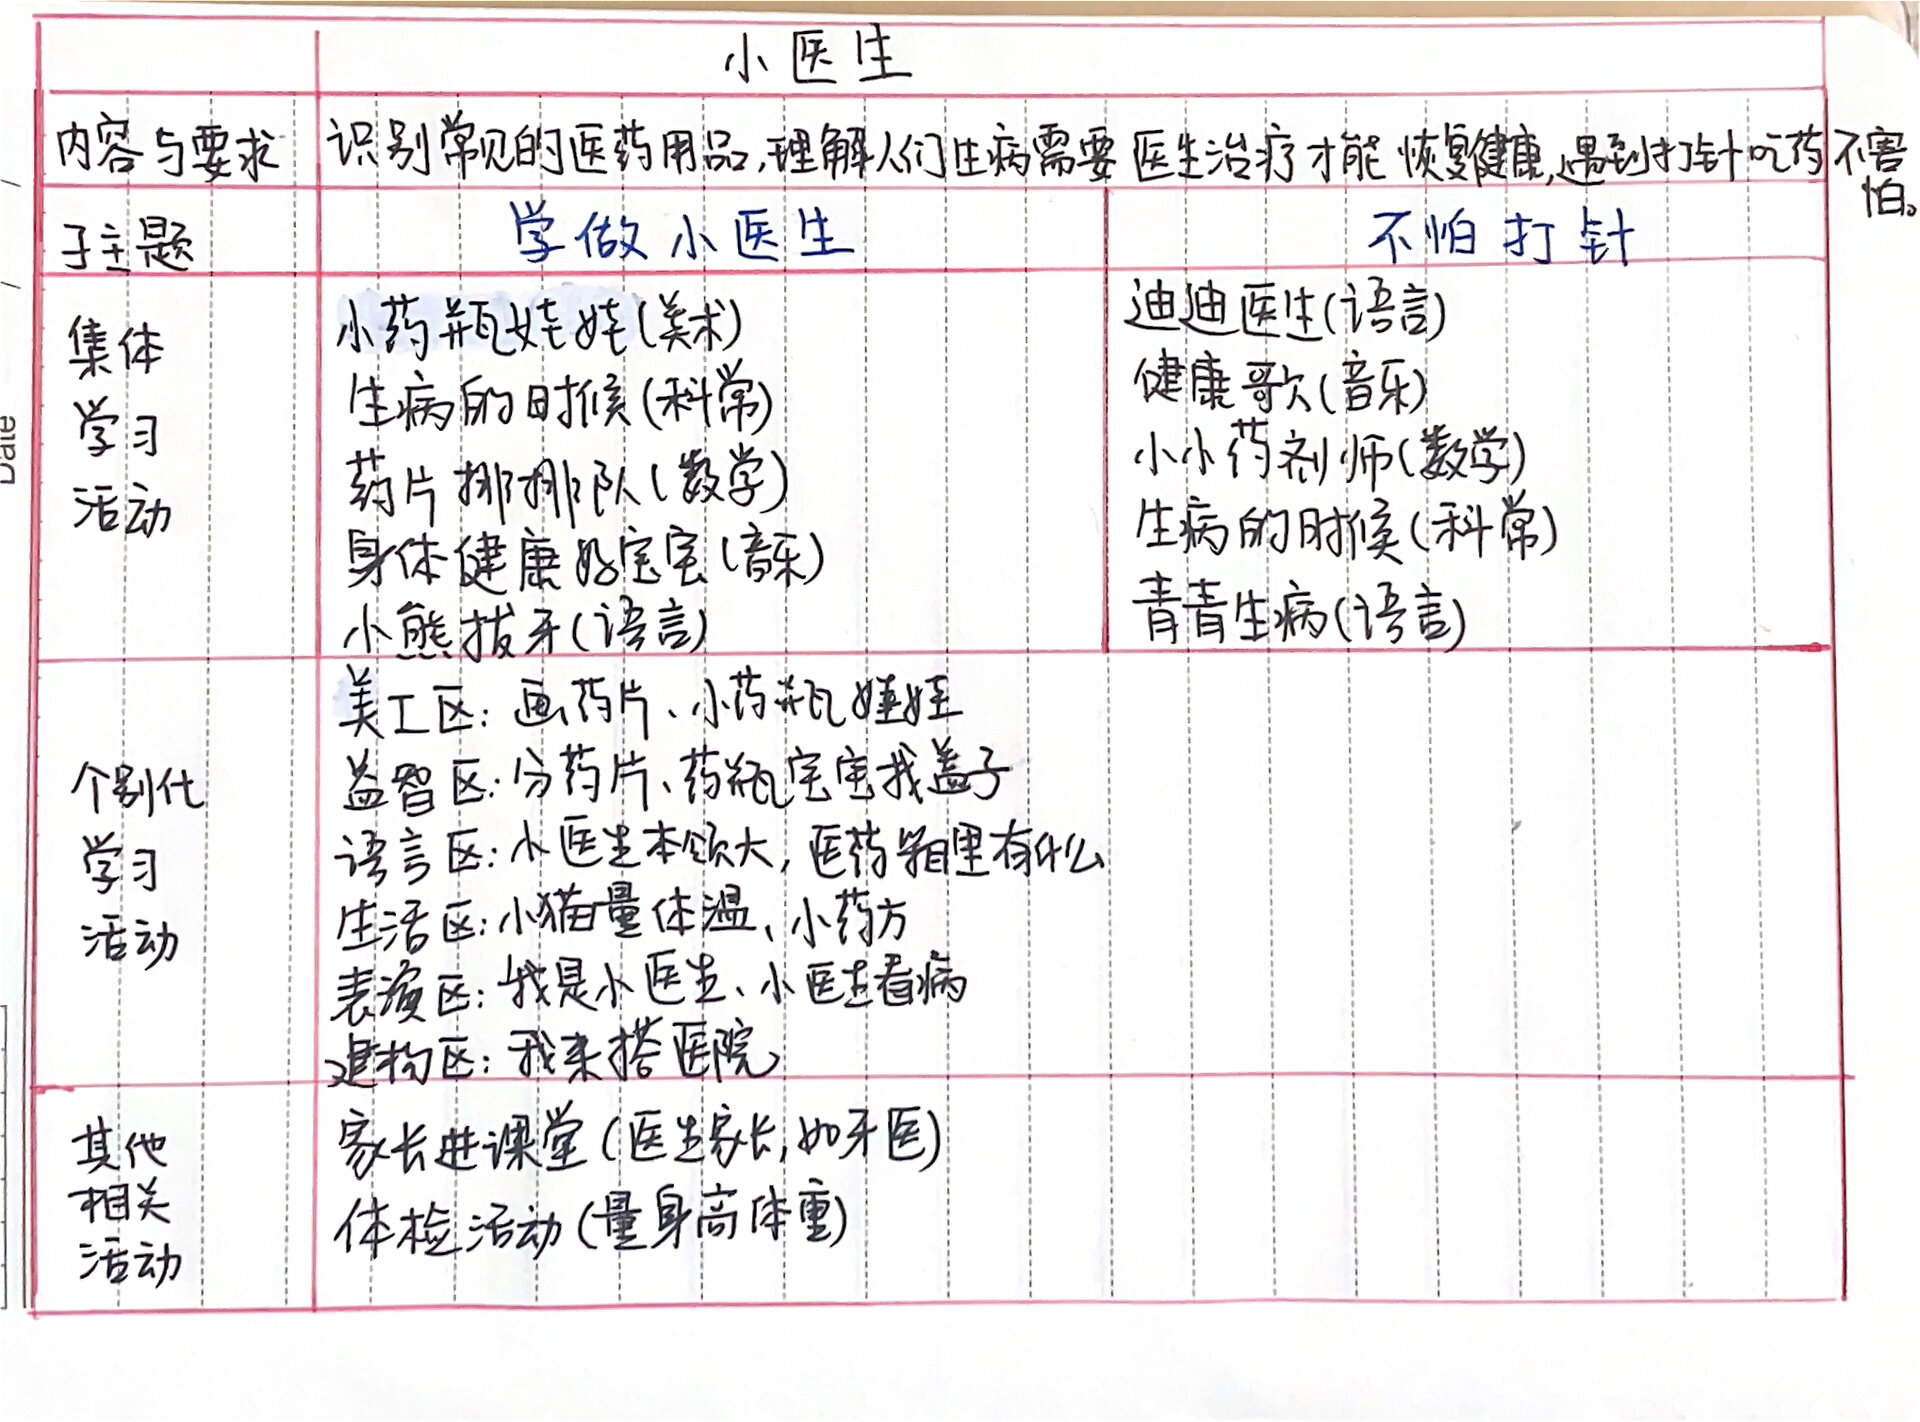 小医生
内容与要求
识别常见的医药用品,理解人们生病需要医生治疗才能恢复健康,遇到打针吃药不害
怕。
子主题
学做小医生
不怕打针
集体
学习
活动
小药瓶娃娃(美术)
生病的时候(科常)
药片挪排队(数学)
身体健康好宝宝(音乐)
小熊拔牙(语言)
迪迪医生(语言)
健康歌(音乐)
小小药剂师(数学)
生病的时候(科常)
青青生病(语言)
个别化
学习
活动
美工区:画药片、小药瓶娃娃
益智区:分药片、药瓶宝宝找盖子
语言区:小医生本领大,医药箱里有什么
生活区:小猫量体温、小药方
表演区:我是小医生、小医生看病
建构区:我来搭医院
其他
相关
活动
家长进课堂(医生家长,如牙医)
体检活动(量身高体重)
Date / /